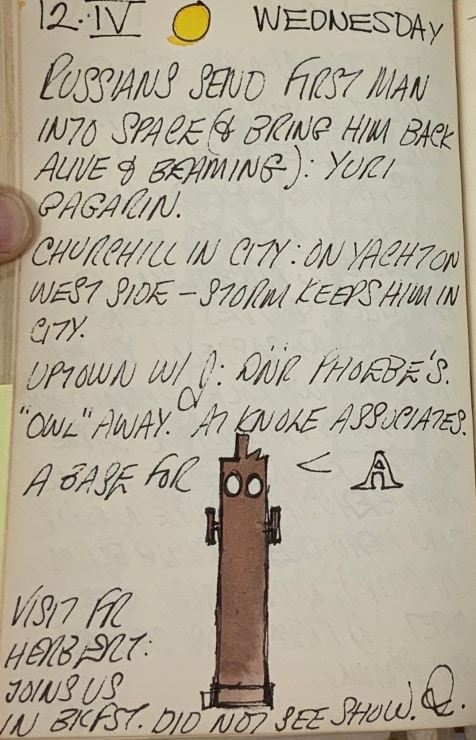 12·IV WEDNESDAY
RUSSIANS SEND FIRST MAN
INTO SPACE (& BRING HIM BACK
ALIVE & BEAMING): YURI
GAGARIN.
CHURCHILL IN CITY: ON YACHT ON
WEST SIDE – STORM KEEPS HIM IN
CITY.
UPTOWN W/ J: DNR PHOEBE'S.
"OWL" AWAY. AT KNOLE ASSOCIATES.
A BASE FOR < A
VISIT FR
HERBERT:
JOINS US
IN BKFST. DID NOT SEE SHOW. Q.